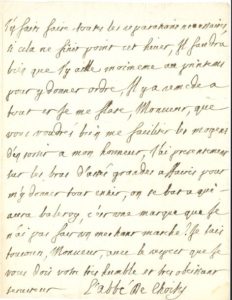 J'y fais faire toutes les reparations necessaires,
si cela ne finit point cet hiver, Il faudra
bien que j'y aille moimeme au printems
pour y donner ordre, Il y a remede a
tout et Je me flate, Monsieur, que
vous voudrés bien me faciliter les moyens
d'en sortir a mon honneur, J'ai presentement
sur les bras d'assés grandes affaires pour
m'y donner tout entier, on se bat a qui
aura baleroy, c'est une marque que Je
n'ai pas fait un mechant marché. Je suis
toujours, Monsieur, avec le respect que Je
vous dois votre tres humble et tres obeissant
serviteur
L'abbé De Choisy